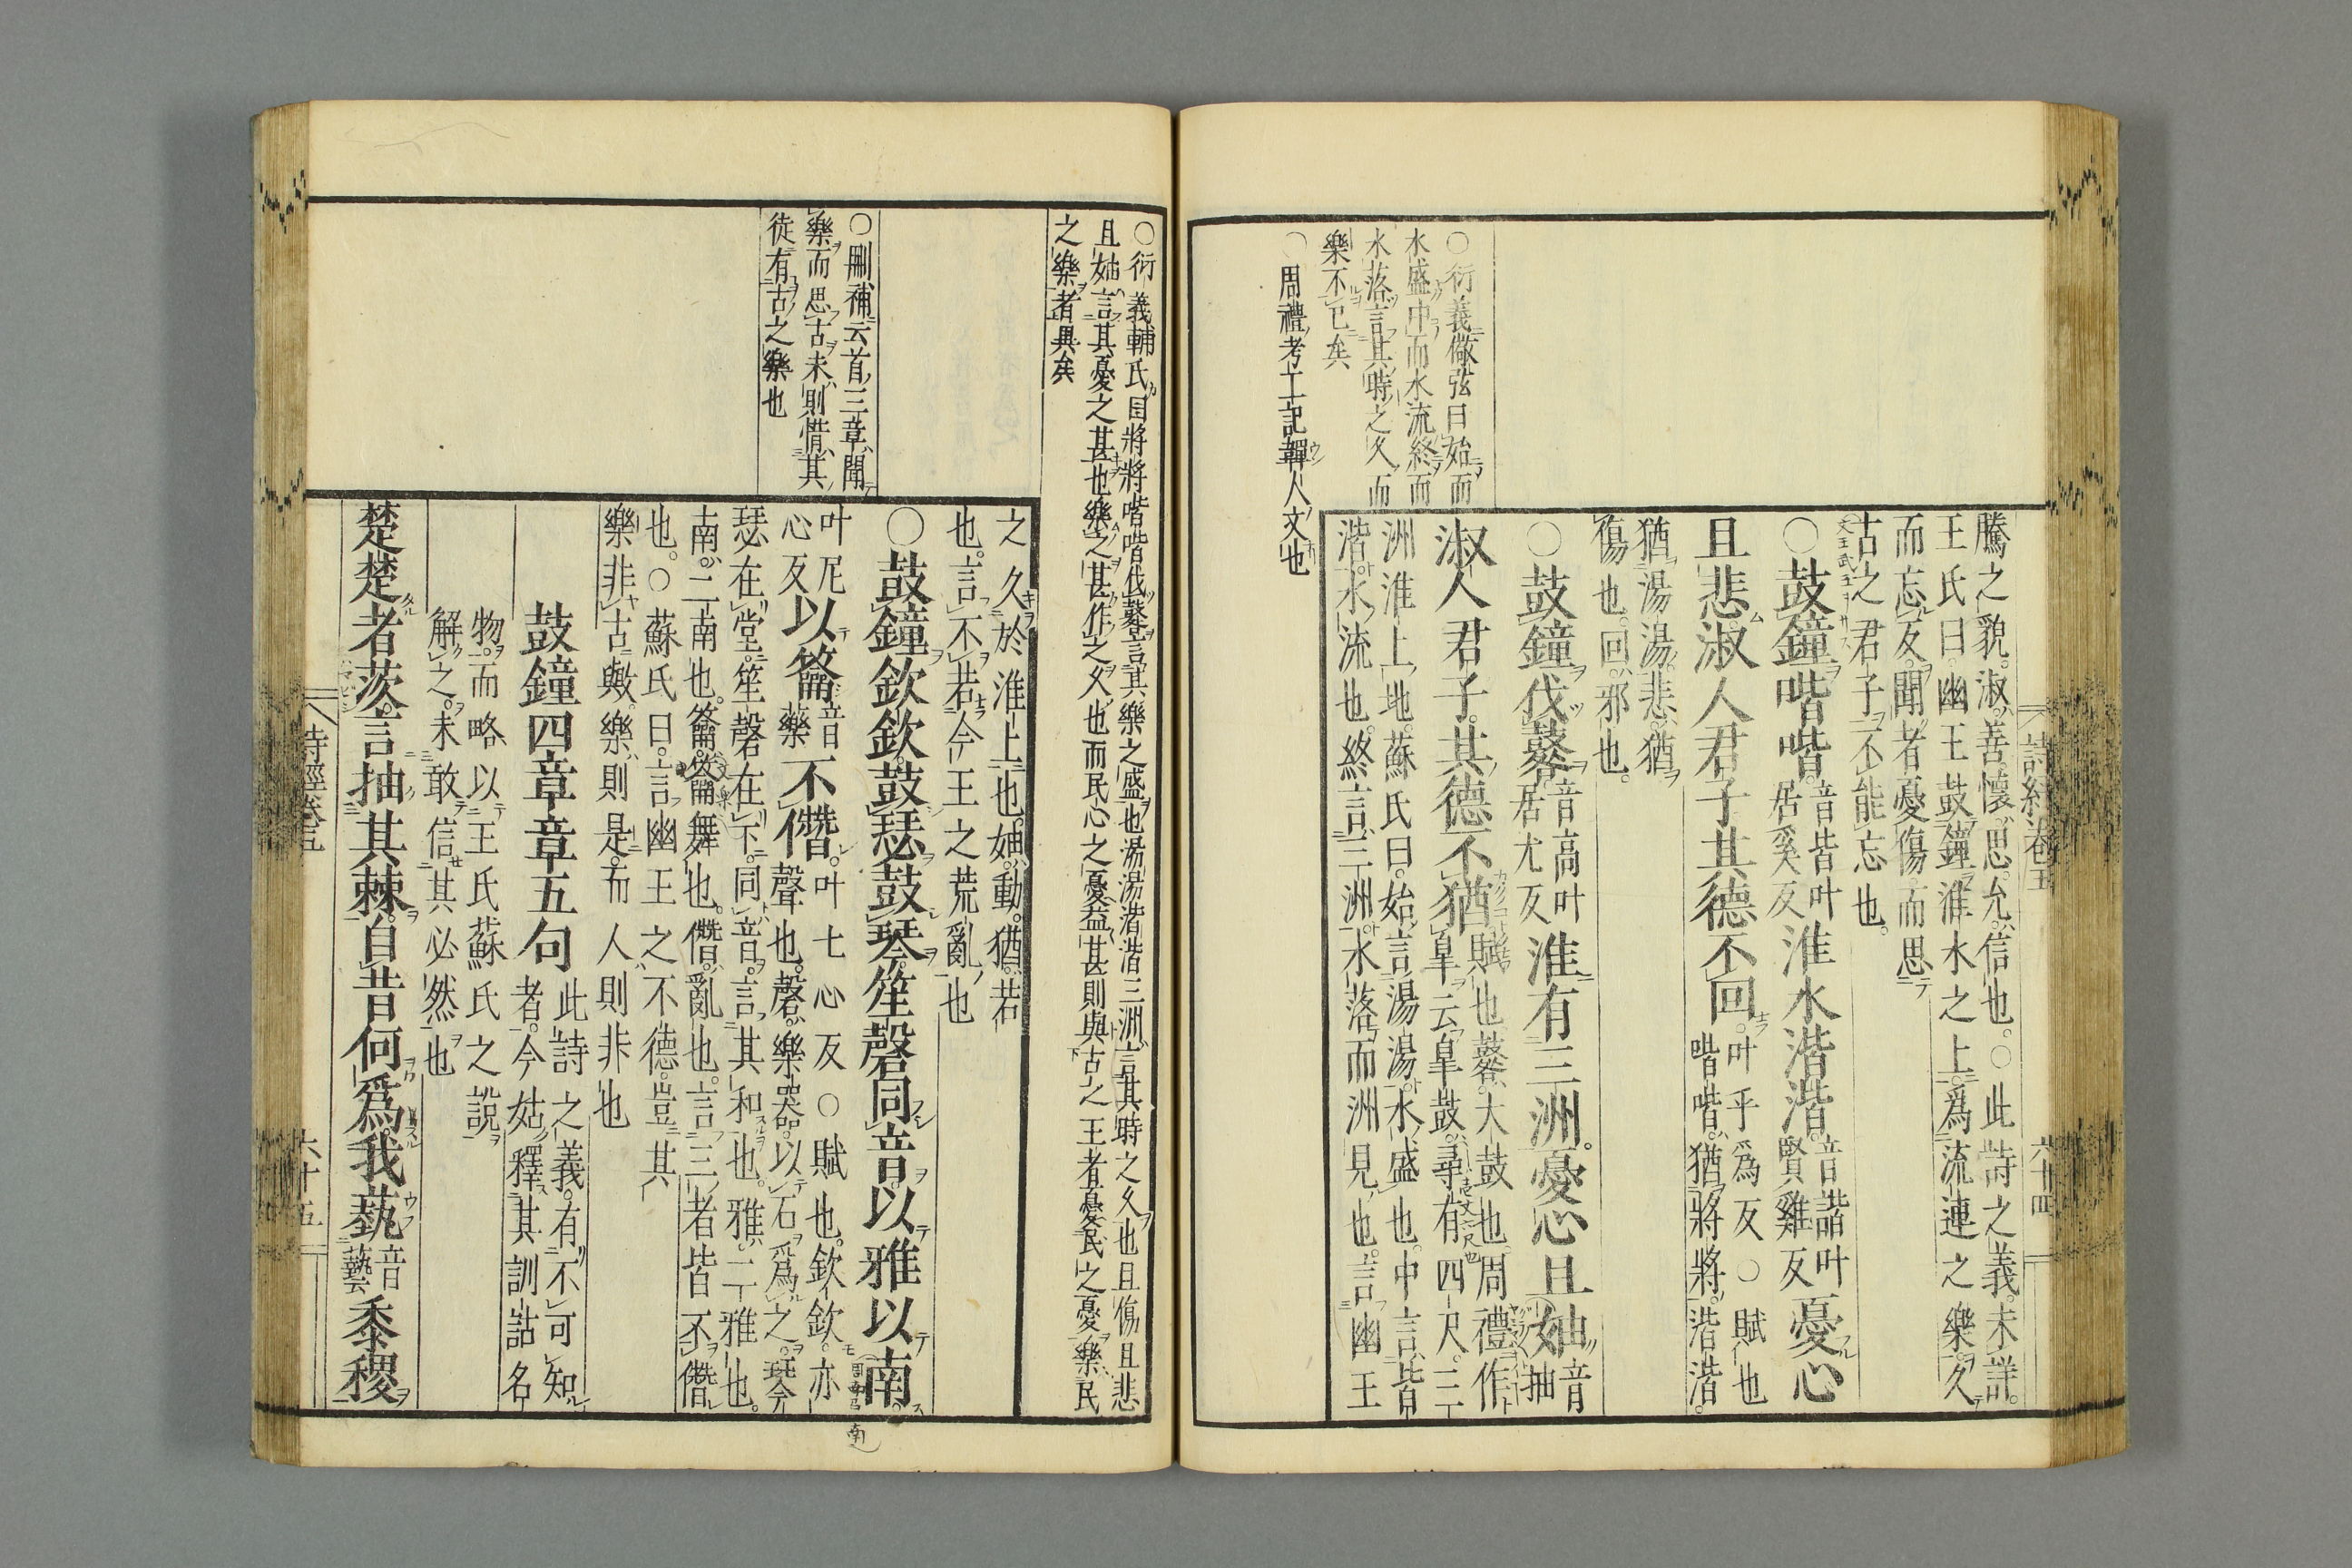 詩經卷五
六十四
騰之貌。淑。善。懷。思。允。信也。○此詩之義。未詳。
王氏曰。幽王鼓鐘淮水之上。爲流連之樂。久
而忘反。聞者憂傷。而思
古之君子。不能忘也。
○鼓鐘喈喈。音皆叶居奚反淮水湝湝。音諧叶賢雞反憂心
且悲。淑人君子其德不回。叶乎爲反○賦也喈喈。猶將將。湝湝。
猶湯湯。悲。猶
傷也。回。邪也。
○鼓鐘伐鼛。音高叶居尤反淮有三洲。憂心且妯。音抽
淑人君子。其德不猶。賦也。鼛。大鼓也。周禮作皐。云皐鼓。尋有四尺。三
洲。淮上地。蘇氏曰。始言湯湯。水盛也。中言
湝湝。水流也。終言三洲。水落而洲見也。言幽王
○衍義儆弦曰始而
水盛中而水流終而
水落言其時之久而
樂不已矣
○周禮考工記韗人文也
○衍義輔氏曰將將喈喈伐鼛言其樂之盛也湯湯湝湝三洲言其時之久也且傷且悲
且妯言其憂之甚也樂之甚作之久也而民心之憂益甚則與古之王者憂民之憂樂民
之樂者異矣
之久於淮上也。妯。動。猶。若
也。言不若今王之荒亂也
○鼓鐘欽欽。鼓瑟鼓琴。笙磬同音。以雅以南。
叶尼心反以籥音藥不僭。叶七心反○賦也。欽欽。亦
聲也。磬。樂器。以石爲之。琴
瑟在堂。笙磬在下。同音。言其和也。雅。二雅也。
南。二南也。籥。籥舞也。僭。亂也。言三者皆不僭
也。○蘇氏曰。言幽王之不德。豈其
樂非古歟。樂則是。而人則非也
鼓鐘四章章五句此詩之義。有不可知
者。今姑釋其訓詁名
物。而略以王氏蘇氏之說
解之。未敢信其必然也
楚楚者茨。言抽其棘。自昔何爲。我蓺音藝黍稷
○刪補云首三章聞
樂而思古未則惜其
徒有古之樂也
詩經卷五
六十五